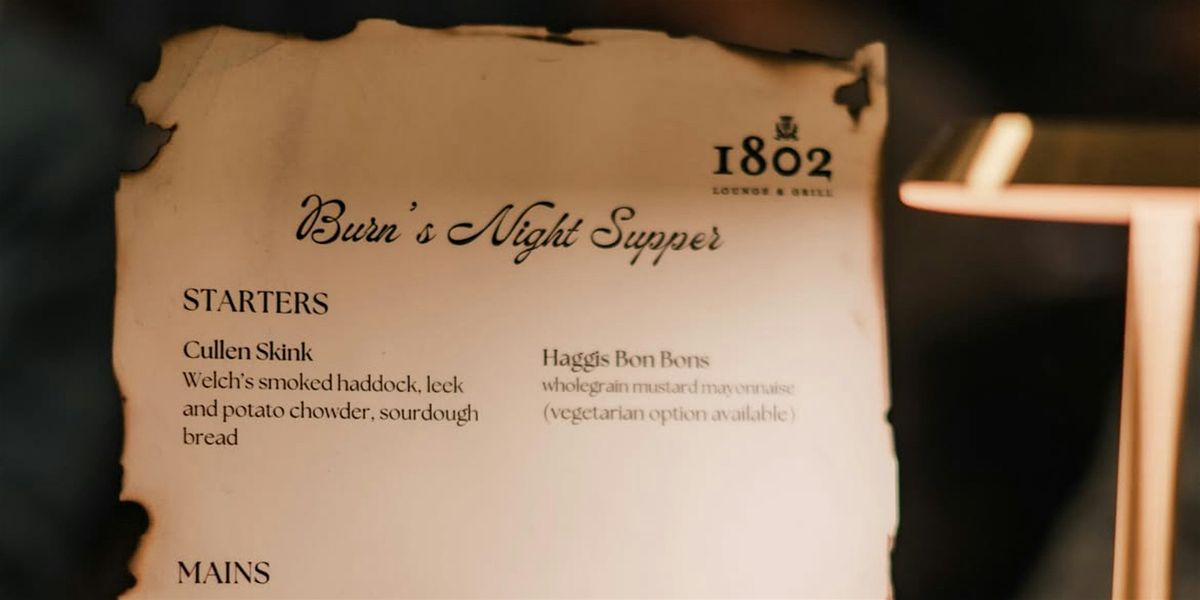 1802
LOUNGE & GRILL
Burn's Night Supper
STARTERS
Cullen Skink
Welch's smoked haddock, leek
and potato chowder, sourdough
bread
Haggis Bon Bons
wholegrain mustard mayonnaise
(vegetarian option available)
MAINS